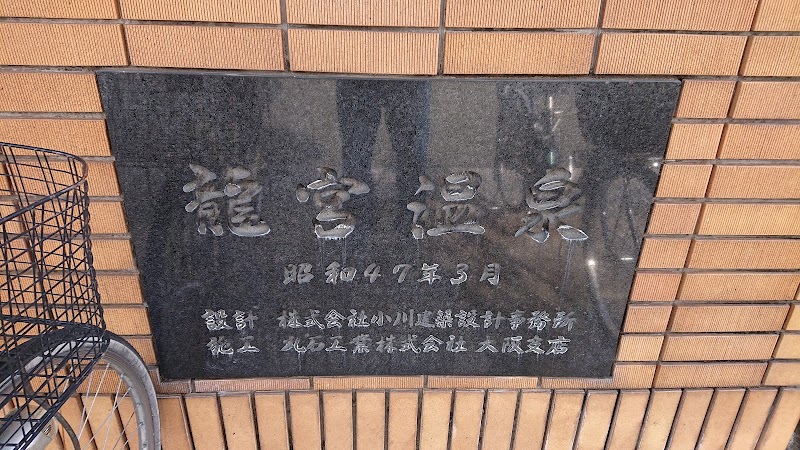 龍宮温泉
昭和47年3月
設計 株式会社小川建築設計事務所
施工 孔石工業株式会社 大阪支店